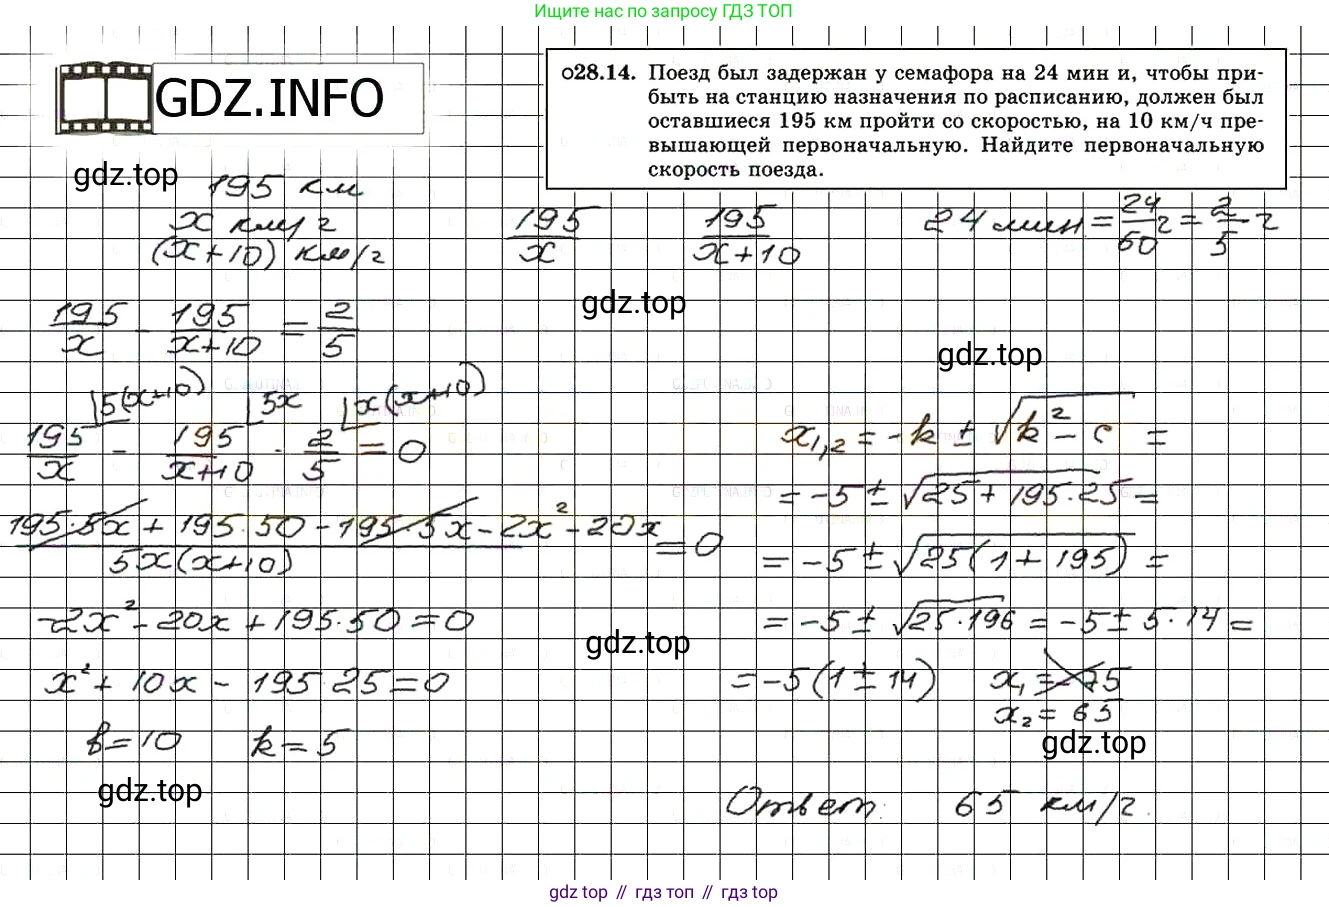 Ищите нас по запросу ГДЗ ТОП
GDZ.INFO
О28.14. Поезд был задержан у семафора на 24 мин и, чтобы при-
быть на станцию назначения по расписанию, должен был
оставшиеся 195 км пройти со скоростью, на 10 км/ч пре-
вышающей первоначальную. Найдите первоначальную
скорость поезда.
gdz.top
195 км
x км/ч
(x+10) км/ч
195/x
195/(x+10)
24 мин = 24/60 ч = 2/5 ч
gdz.top
195/x - 195/(x+10) = 2/5
gdz.top
5(x+10) 5x x(x+10)
195/x - 195/(x+10) - 2/5 = 0
(195·5x + 195·50 - 195·5x - 2x² - 20x)/(5x(x+10)) = 0
-2x² - 20x + 195·50 = 0
x² + 10x - 195·25 = 0
b = 10 k = 5
gdz.top
x₁,₂ = -k ± √(k² - c) =
= -5 ± √(25 + 195·25) =
= -5 ± √(25(1 + 195)) =
= -5 ± √(25·196) = -5 ± 5·14 =
gdz.top
= -5(1 ± 14) x₁ = -75
x₂ = 65
gdz.top
Ответ: 65 км/ч.
gdz top // гдз топ // гдз top